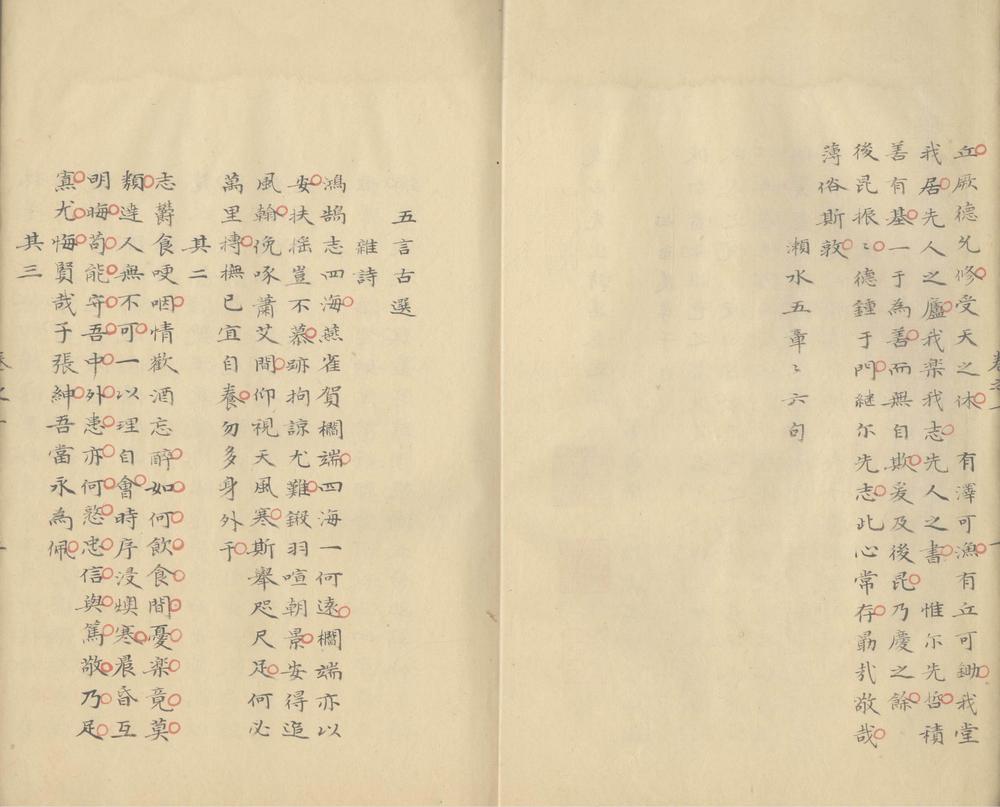 丘厥德允修受天之休　有澤可漁有丘可鋤我堂
我居先人之廬我樂我志先人之書　惟尔先哲積
善有基一于為善而無自欺爰及後昆乃慶之餘
後昆振〻德鍾于門継尔先志此心常存勗㢤敬哉
薄俗斯敦
瀨水五章〻六句
五言古選
雜詩
鴻鵠志四海燕雀賀櫊端四海一何遠櫊端亦以
安扶揺豈不慕跡拘諒尤難鎩羽喧朝景安得追
風翰俛啄蕭艾間仰視天風寒斯舉咫尺足何必
萬里摶撫已宜自養勿多身外干
其二
志爵食哽咽情歡酒忘醉如何飲食間憂楽竟莫
類達人無不可一以理自會時序浸燠寒晨昏互
明晦苟能守吾中外患亦何憝忠信與篤敬乃足
寘尤悔賢哉子張紳吾當永為佩
其三